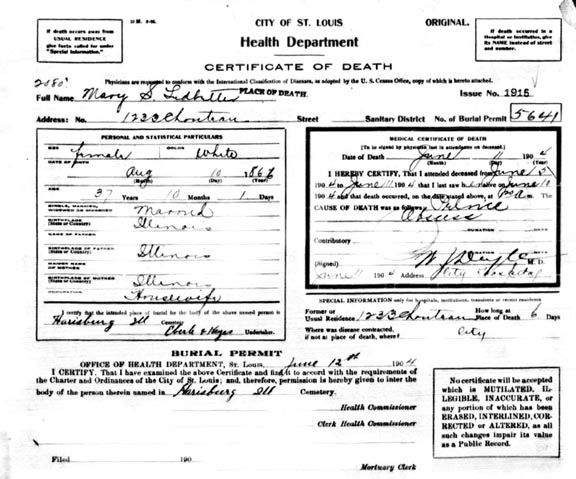 If death occurs away from
USUAL RESIDENCE
give facts called for under
"Special Information."
CITY OF ST. LOUIS
ORIGINAL.
Health Department
If death occurred in a
Hospital or Institution, give
its NAME instead of street
and number.
CERTIFICATE OF DEATH
Physicians are requested to conform with the International Classification of Diseases, as adopted by the U. S. Census Office, copy of which is hereto attached.
Full Name Mary S. Ledbetter PLACE OF DEATH. Issue No. 1915
Address: No. 1223 Chouteau Street Sanitary District No. of Burial Permit 5641
PERSONAL AND STATISTICAL PARTICULARS
SEX female COLOR White
DATE OF BIRTH
Aug 10 1866
(Month) (Day) (Year)
AGE
37 Years 10 Months 1 Days
SINGLE, MARRIED,
WIDOWED OR DIVORCED Married
BIRTHPLACE
(State or Country) Illinois
NAME OF FATHER
BIRTHPLACE OF FATHER
(State or Country) Illinois
MAIDEN NAME
OF MOTHER
BIRTHPLACE OF MOTHER
(State or Country) Illinois
OCCUPATION Housewife
I certify that the intended place of burial for the body of the above named person is
Harisburg Ill Cemetery.
Undertaker.
MEDICAL CERTIFICATE OF DEATH
(To be signed by physician last in attendance on deceased.)
Date of Death June 11 1904
(Month) (Day) (Year)
I HEREBY CERTIFY, That I attended deceased from June 5
1904 to June 11 1904 that I last saw h er alive on June 10
1904 and that death occurred, on the date stated above, at m. The
CAUSE OF DEATH was as follows:
Abscess
DURATION
Contributory
DURATION
(Signed) M.D.
June 11 1904 Address City Hospital
SPECIAL INFORMATION only for hospitals, institutions, transients or recent residents
Former or
Usual Residence 1223 Chouteau How long at
Place of Death 6 Days
Where was disease contracted,
if not at place of death? City
BURIAL PERMIT
OFFICE OF HEALTH DEPARTMENT, St. Louis, June 12th 1904
I CERTIFY, That I have examined the above Certificate and find it to accord with the requirements of
the Charter and Ordinances of the City of St. Louis; and, therefore, permission is hereby given to inter the
body of the person therein named in Harisburg Ill Cemetery.
Health Commissioner
Clerk Health Commissioner
Filed 190
Mortuary Clerk
No certificate will be accepted
which is MUTILATED, IL-
LEGIBLE, INACCURATE, or
any portion of which has been
ERASED, INTERLINED, COR-
RECTED or ALTERED, as all
such changes impair its value
as a Public Record.